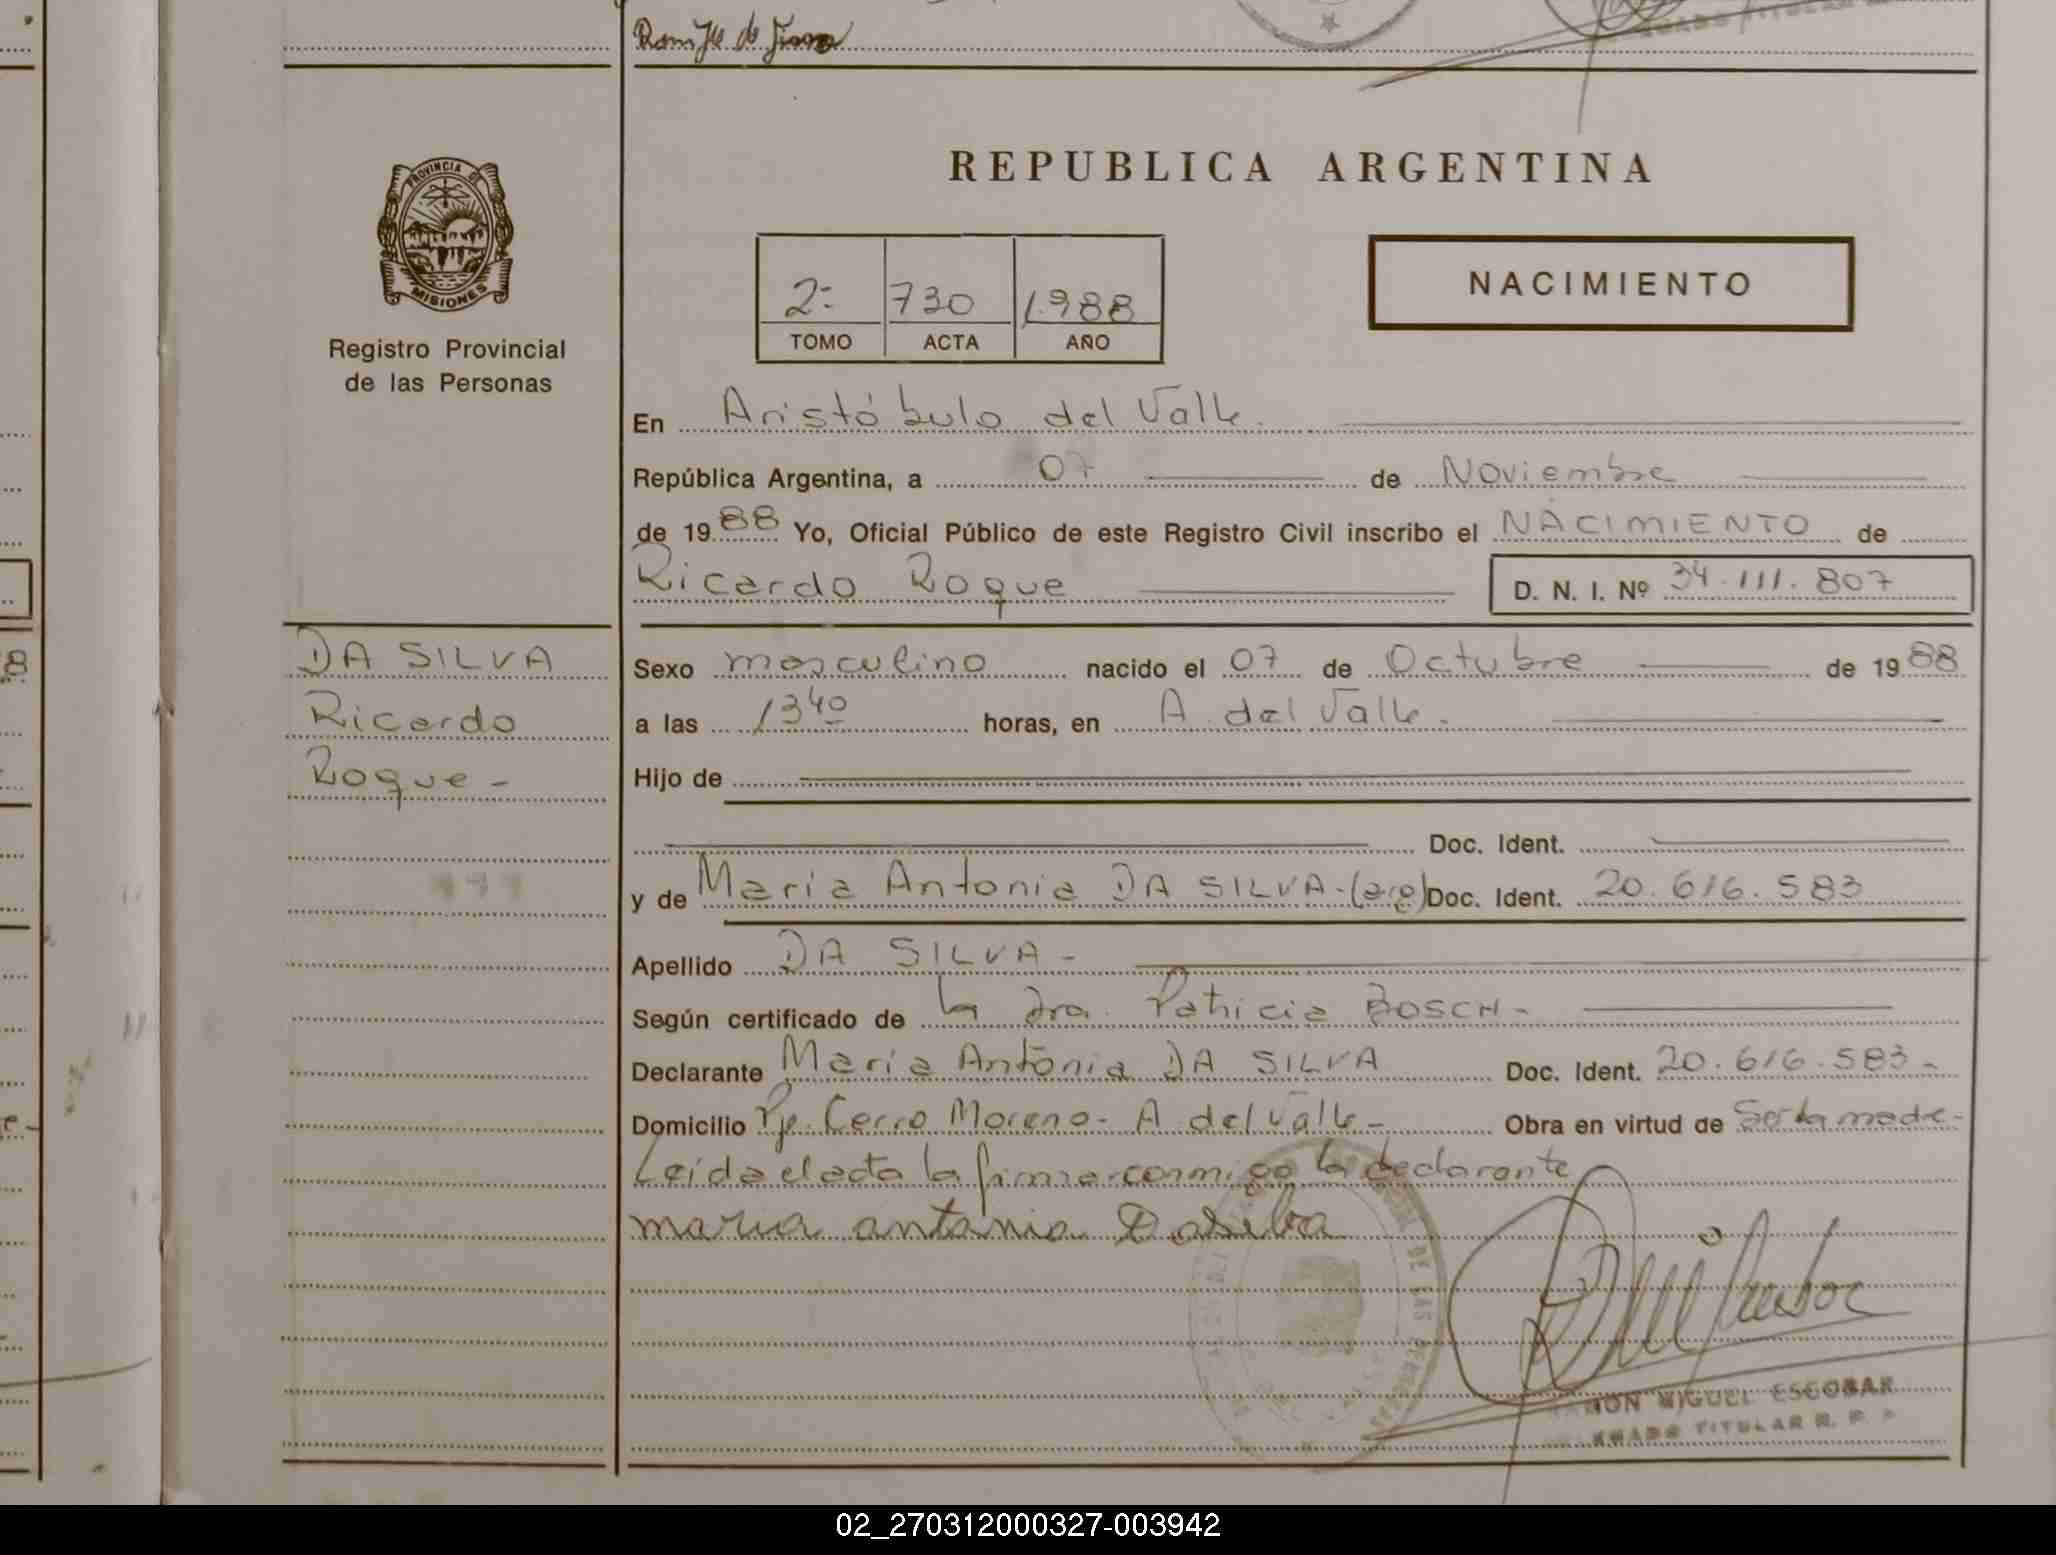 PROVINCIA DE
MISIONES
Registro Provincial
de las Personas
DA SILVA
Ricardo
Roque -
REPUBLICA ARGENTINA
2º 730 1.988
TOMO ACTA AÑO
NACIMIENTO
En Aristóbulo del Valle.
República Argentina, a 07 de Noviembre
de 19 88 Yo, Oficial Público de este Registro Civil inscribo el NACIMIENTO de
Ricardo Roque D. N. I. Nº 34.111.807
Sexo masculino nacido el 07 de Octubre de 19 88
a las 13 40 horas, en A. del Valle.
Hijo de
Doc. Ident.
y de Maria Antonia DA SILVA-(arg) Doc. Ident. 20.616.583
Apellido DA SILVA -
Según certificado de la Dra. Patricia BOSCH -
Declarante María Antonia DA SILVA Doc. Ident. 20.616.583 -
Domicilio Pje. Cerro Moreno - A. del Valle - Obra en virtud de Ser la madre-
Leída el acta la firma conmigo la declarante
maria antonia Dasilva
RAMON MIGUEL ESCOBAR
TITULAR R. P. P
02_270312000327-003942